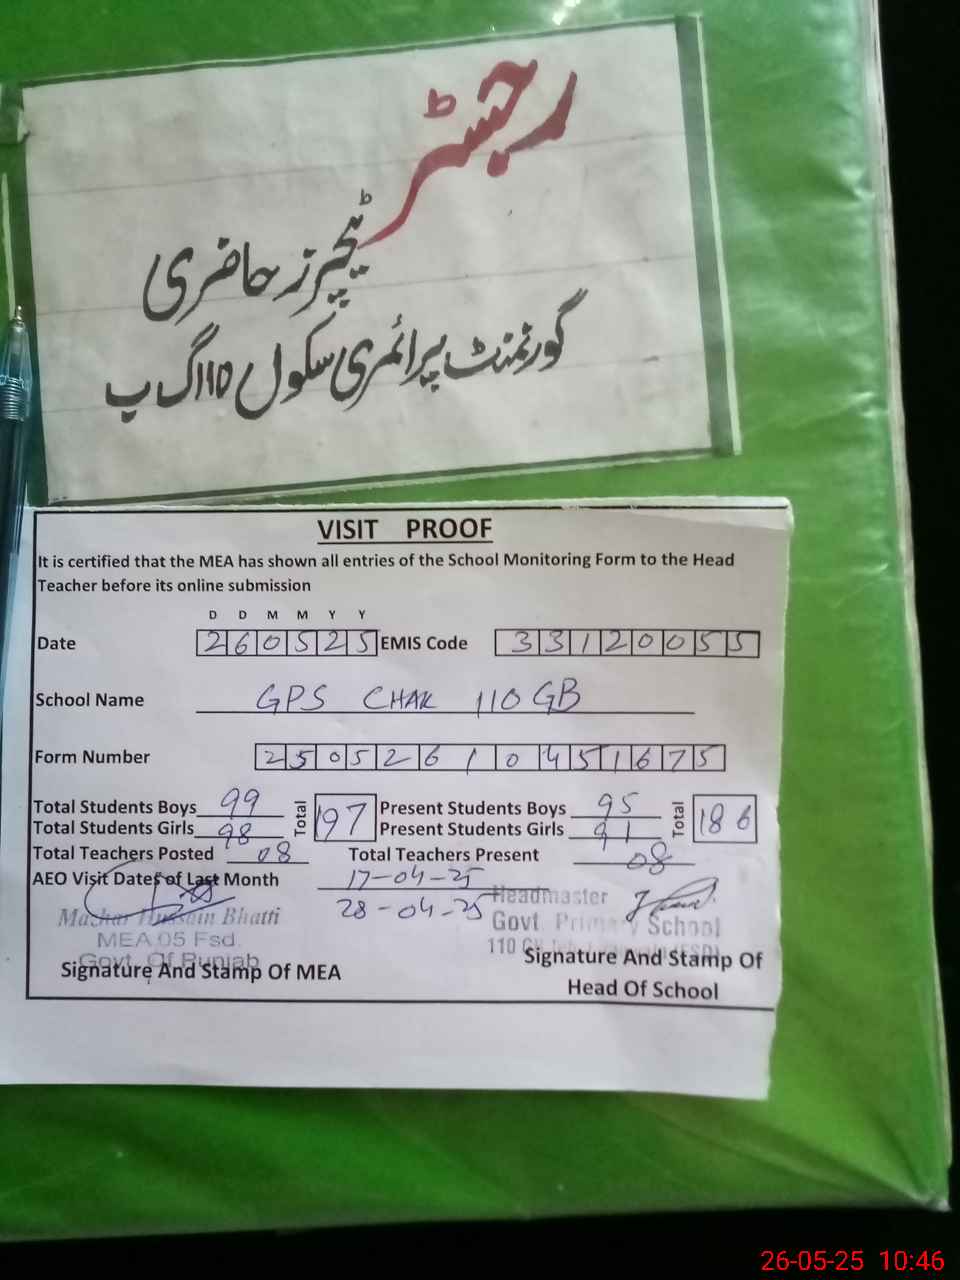 رجسٹر
ٹیچرز حاضری
گورنمنٹ پرائمری سکول 110 گ ب
VISIT PROOF
It is certified that the MEA has shown all entries of the School Monitoring Form to the Head
Teacher before its online submission
D D M M Y Y
Date 260525 EMIS Code 33120055
School Name GPS CHAK 110 GB
Form Number 25052610451675
Total Students Boys 99 Total 197 Present Students Boys 95 Total 186
Total Students Girls 98 Present Students Girls 91
Total Teachers Posted 08 Total Teachers Present 08
AEO Visit Dates of Last Month 17-04-25
28-04-25
Headmaster
Mazhar Hussain Bhatti Govt. Primary School
MEA 05 Fsd. 110
Govt. Of Punjab
Signature And Stamp Of MEA Signature And Stamp Of
Head Of School
26-05-25 10:46